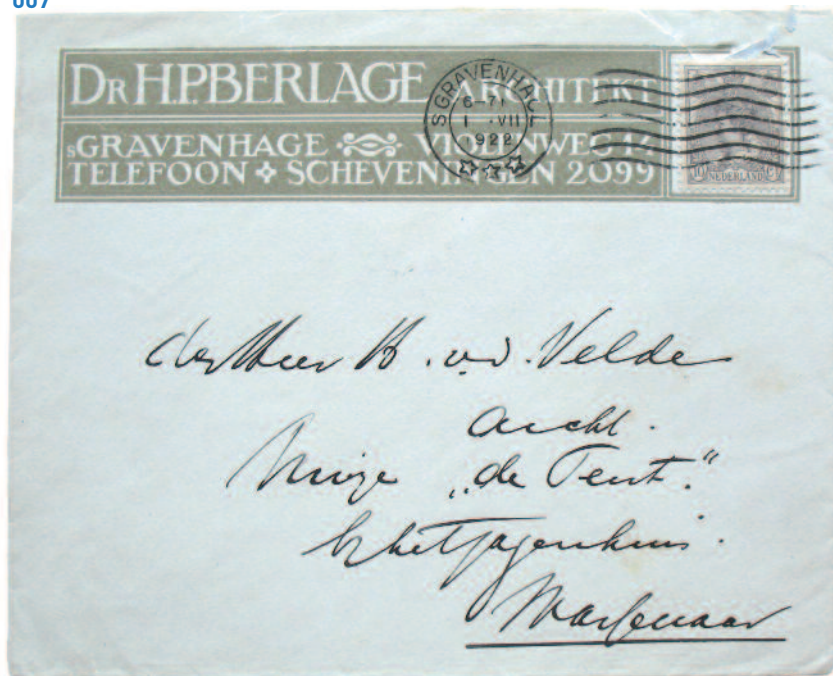 007
DR H.P.BERLAGE ARCHITEKT
sGRAVENHAGE VIOLENWEG 14
TELEFOON SCHEVENINGEN 2099
S GRAVENHAGE
6-7
1 .VII
1922
NEDERLAND
den Heer H. v.d. Velde
Archt.
huize „de Tent."
b/ het Jagershuis.
Wassenaar